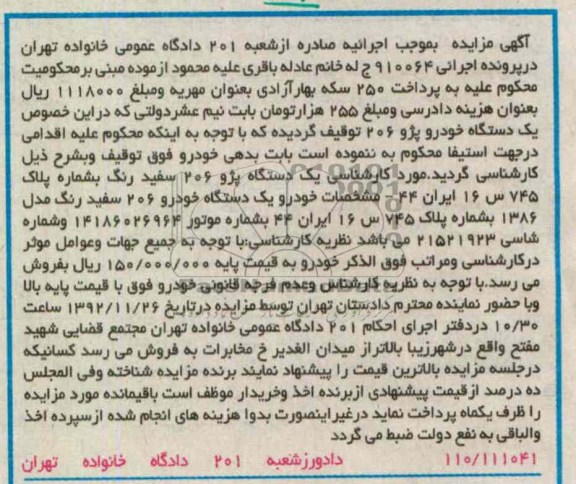 آگهی مزایده بموجب اجرائیه صادره ازشعبه ۲۰۱ دادگاه عمومی خانواده تهران
درپرونده اجرائی ۹۱۰۰۶۴ ج له خانم عادله باقری علیه محمود ازموده مبنی برمحکومیت
محکوم علیه به پرداخت ۲۵۰ سکه بهارآزادی بعنوان مهریه ومبلغ ۱۱۱۸۰۰۰ ریال
بعنوان هزینه دادرسی ومبلغ ۲۵۵ هزارتومان بابت نیم عشردولتی که دراین خصوص
یک دستگاه خودرو پژو ۲۰۶ توقیف گردیده که با توجه به اینکه محکوم علیه اقدامی
درجهت استیفا محکوم به ننموده است بابت بدهی خودرو فوق توقیف وبشرح ذیل
کارشناسی گردید.مورد کارشناسی یک دستگاه پژو ۲۰۶ سفید رنگ بشماره پلاک
۷۴۵ س ۱۶ ایران ۴۴ مشخصات خودرو یک دستگاه خودرو ۲۰۶ سفید رنگ مدل
۱۳۸۶ بشماره پلاک ۷۴۵ س ۱۶ ایران ۴۴ بشماره موتور ۱۴۱۸۶۰۲۶۹۶۴ وشماره
شاسی ۲۱۵۲۱۹۲۳ می باشد نظریه کارشناسی:با توجه به جمیع جهات وعوامل موثر
درکارشناسی ومراتب فوق الذکر خودرو به قیمت پایه ۱۵۰/۰۰۰/۰۰۰ ریال بفروش
می رسد.با توجه به نظریه کارشناس وعدم فرجه قانونی خودرو فوق با قیمت پایه بالا
وبا حضور نماینده محترم دادستان تهران توسط مزایده درتاریخ ۱۳۹۲/۱۱/۲۶ ساعت
۱۰/۳۰ دردفتر اجرای احکام ۲۰۱ دادگاه عمومی خانواده تهران مجتمع قضایی شهید
مفتح واقع درشهرزیبا بالاتراز میدان الغدیر خ مخابرات به فروش می رسد کسانیکه
درجلسه مزایده بالاترین قیمت را پیشنهاد نمایند برنده مزایده شناخته وفی المجلس
ده درصد ازقیمت پیشنهادی ازبرنده اخذ وخریدار موظف است باقیمانده مورد مزایده
را ظرف یکماه پرداخت نماید درغیراینصورت بدوا هزینه های انجام شده ازسپرده اخذ
والباقی به نفع دولت ضبط می گردد
۱۱۰/۱۱۱۰۴۱ دادورزشعبه ۲۰۱ دادگاه خانواده تهران